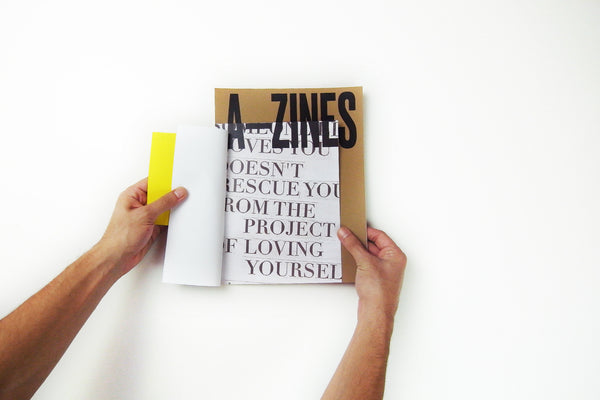 A ZINES
OVES YOU
DOESN'T
RESCUE YOU
ROM THE
PROJECT
OF LOVING
YOURSEL